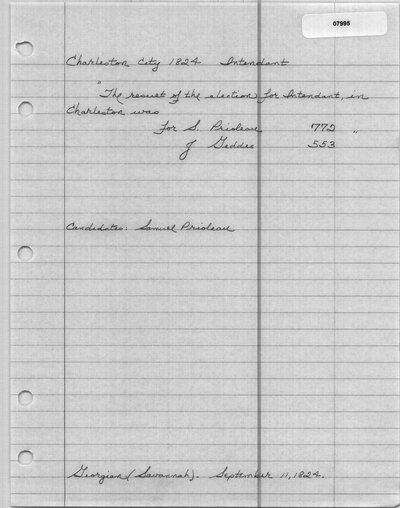 07995
Charleston City 1824 Intendant
"The result of the election for Intendant, in
Charleston was
for S. Prioleau 772 "
J Geddes 553
Candidates: Samuel Prioleau
Georgian (Savannah). September 11, 1824.